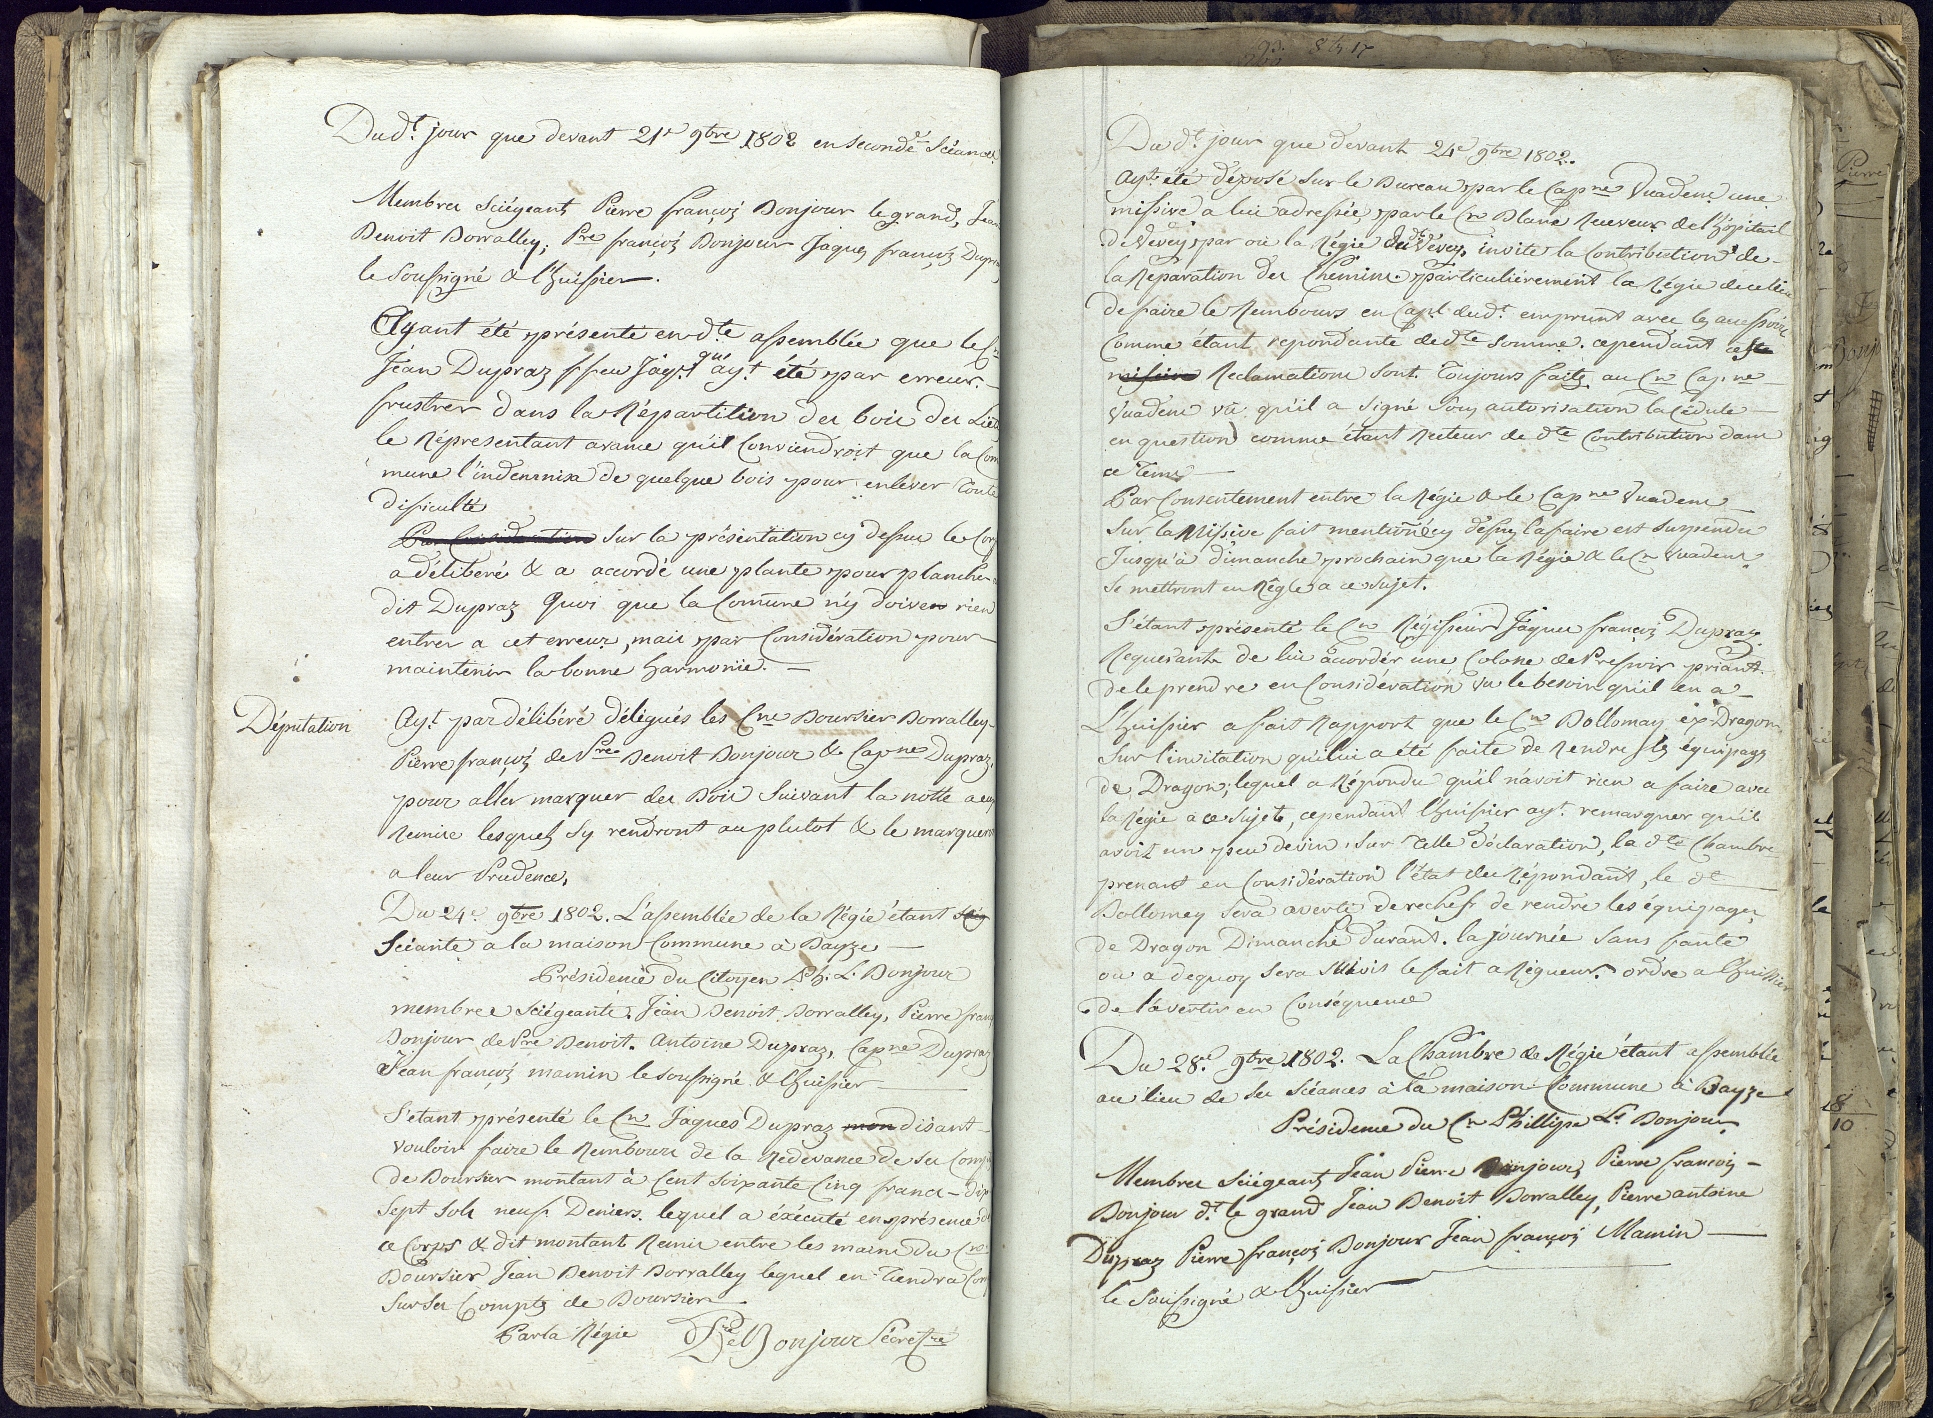 Dud.t jour que devant 21e 9bre 1802 en seconde Scéance
Membres Sciégeants Pierre françois Bonjour le grand, Jean
Benoit Dorvalley; Pre françois Bonjour Jaques françois Dupraz
le soussigné & l'huissier.
Ayant été présenté en dte assemblée que le Cn
Jean Dupraz ffeu Jaqs qui ayt été par erreur
frustrer dans la Répartition des bois des
le Répresentant avance qu'il Conviendroit que la Com
mune l'indemnisa de quelque bois pour enlever toute
difficulté
Par Considération Sur la présentation cy dessus le Corps
a délibéré & a accordé une plante pour planche
dit Dupraz Quoi que la Comune n'y doiven rien
entrer a cet erreur, mais par Considération pour
maintenir la bonne harmonie.
Députation
Ayt par délibéré délégués les Cns Boursier Dorvalley
Pierre françois de Pre Benoit Bonjour & Capne Dupraz,
pour aller marquer des Bois Suivant la notte a eux
Remise lesquels sy rendront au plutot & le marqueront
a leur Prudence,
Du 24e 9bre 1802. L'assemblée de la Régie étant
Scéante a la maison Commune à Bayze
Présidence du Citoyen Ph. L. Bonjour
membres Sciégeants, Jean Benoit Dorvalley, Pierre frans
Bonjour de Pre Benoit. Antoine Dupraz, Capne Dupraz
Jean françois mamin le soussigné & l'huissier
S'etant présenté le Cn Jaques Dupraz mon disant
vouloir faire le Rembours de la Redevance de ses Comptes
de Boursier montant à Cent soixante Cinq francs dix
Sept Sols neuf Deniers. lequel a éxécuté en présence de
ce Corps & dit montant Remis entre les mains du Cn
Boursier Jean Benoit Dorvalley lequel en tiendra Compte
Sur ses Comptes de Boursier
Par la Régie Bonjour Sécretre
Dud.t jour que devant 24e 9bre 1802.
Ayt été déposé sur le Bureau par le Capne Vuadens une
missive a lui adressée par le Cn Blanc Receveur de l'hôpital
de Vevey par où la Régie dudt Vevey, invite la Contribution de
la Réparation des Chemins particuliérement la Régie de ce lieu
de faire le Rembours en Capl dudt emprunt avec les accessoires
Comme étant repondante de dte somme. cependant cette
missive Reclamations sont toujours faits au Cn Capne
Vuadens vu qu'il a signé sous autorisation la Cédule
en question comme étant Recteur de dte Contribution dans
ce tems
Par Consentement entre la Régie & le Capne Vuadens
Sur la Missive fait mention cy dessus l'afaire est suspendu
Jusqu'à dimanche prochain que la Régie & le Cn Vuadens
Se mettront en Règle a ce sujet.
S'étant présenté le Cn Régisseur Jaques françois Dupraz
Requerante de lui accordér une Colone de Pressoir priant
de le prendre en Considération vu le besoin qu'il en a
L'huissier a fait Rapport que le Cn Dollomay ex Dragon
Sur l'invitation qui lui a été faite de Rendre les équipages
de Dragon; lequel a Répondu qu'il n'avoit rien a faire avec
la Régie a ce sujet, cependant l'huissier ayt remarquer qu'il
avoit un peu de vin, sur telle déclaration, la dte Chambre
prenant en Considération l'état du Répondant, le dt
Dollomey sera averti derechef de rendre les équipages
de Dragon Dimanche durant la journée sans faute
ou a dequoy sera suivis le fait a Rigueur. ordre a l'huissier
de l'avertir en Conséquence
Du 28e 9bre 1802. La Chambre de Régie étant assemblée
au lieu de ses Scéances à la maison Commune à Bayze
Présidence du Cn Phillipe Ls Bonjour
Membres Sciégeants Jean Pierre Bonjour, Pierre françois
Bonjour dt le grand Jean Benoit Dorvalley, Pierre antoine
Dupraz Pierre françois Bonjour Jean françois Mamin
le soussigné & l'huissier